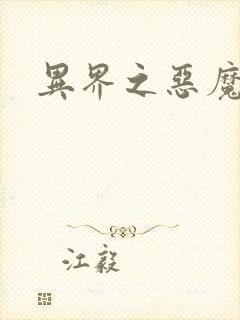 異界之惡魔
江毅